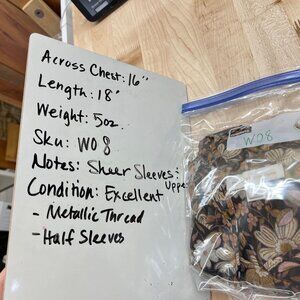 Across Chest: 16"
Length: 18"
Weight: 5oz.
Sku: W08
Notes: Sheer Sleeves &
Upper
Condition: Excellent
- Metallic Thread
- Half Sleeves
W08